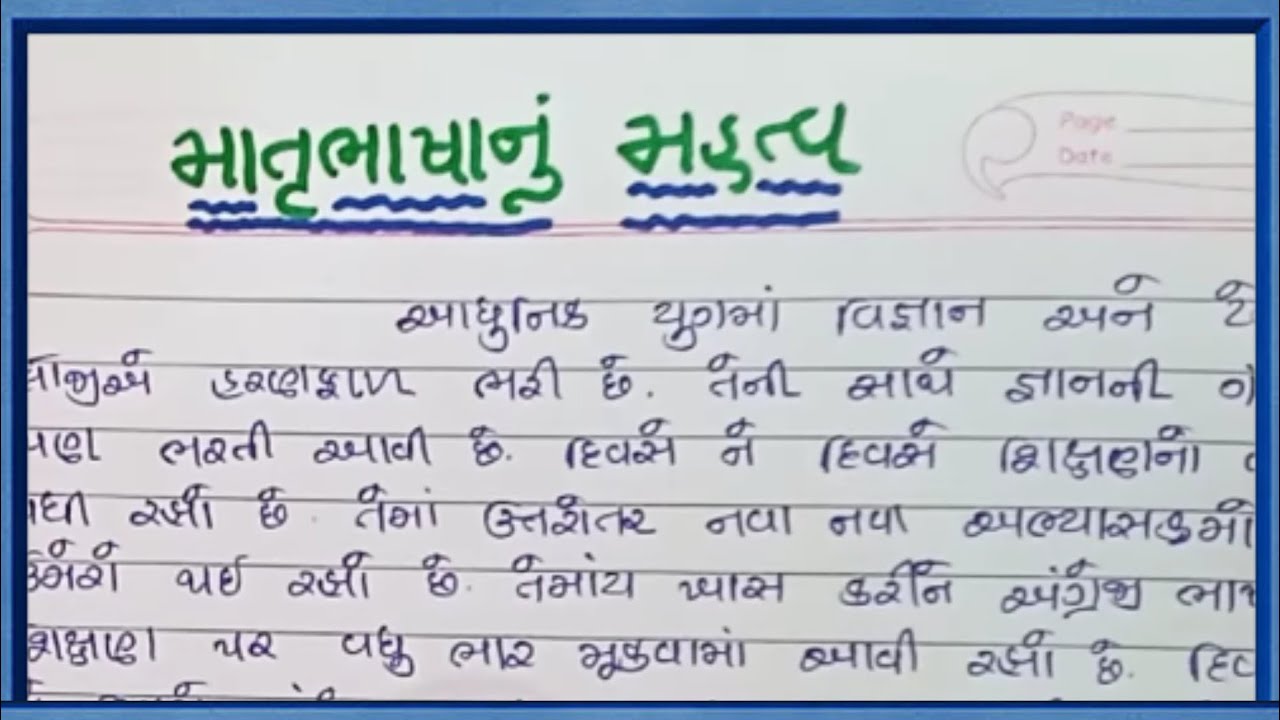 માતૃભાષાનું મહત્વ
Page
Date
આધુનિક યુગમાં વિજ્ઞાન અને ટે
લોજીએ હરણફાળ ભરી છે. તેની સાથે જ્ઞાનની
પણ ભરતી આવી છે. દિવસે ને દિવસે શિક્ષણનો
વધી રહ્યો છે. તેમાં ઉત્તરોતર નવા નવા અભ્યાસક્રમો
ઉમેરો થઈ રહ્યો છે. તેમાંય ખાસ કરીને અંગ્રેજી ભાષ
શિક્ષણ પર વધુ ભાર મૂકવામાં આવી રહ્યો છે. દિવ